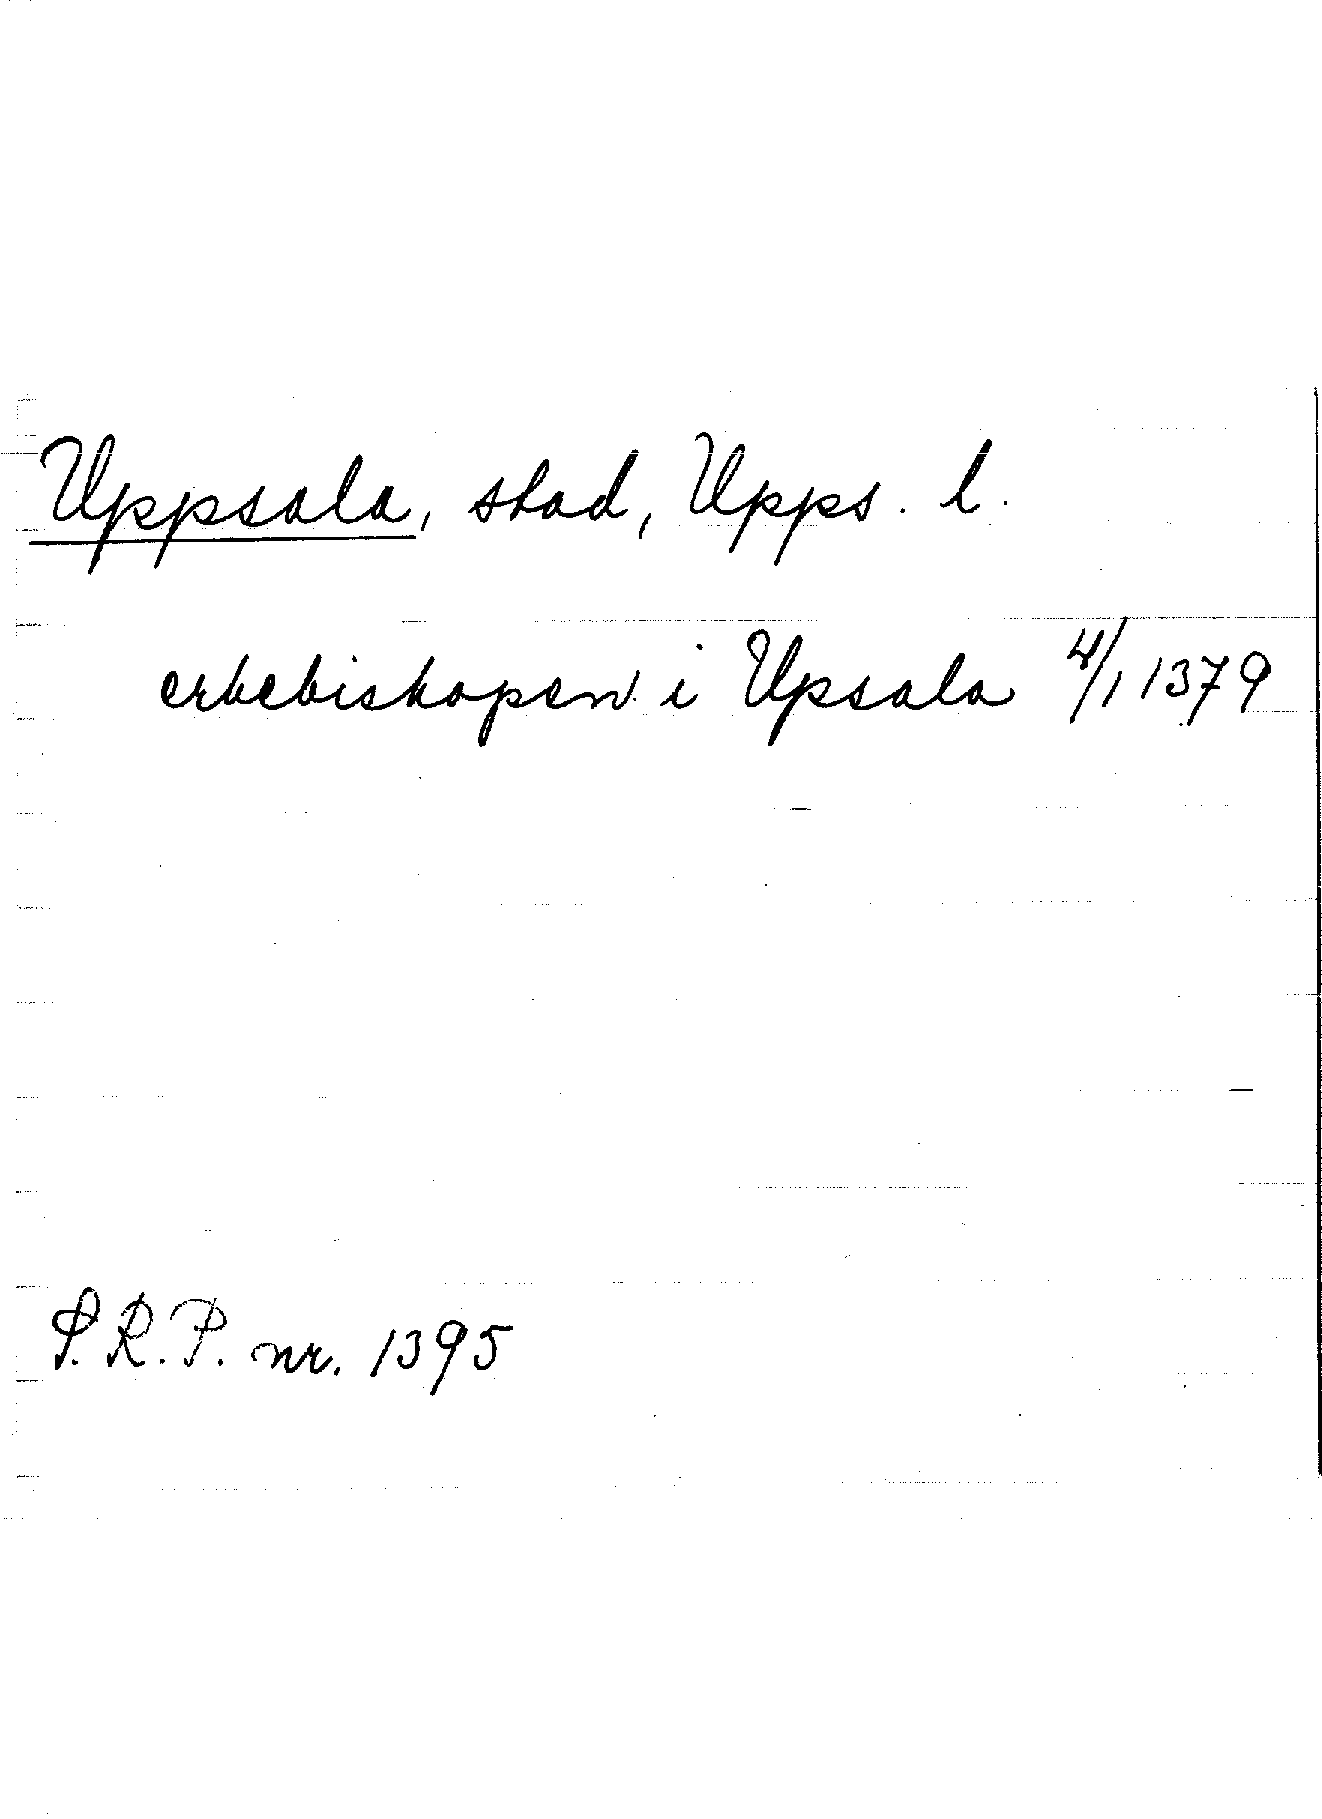 Uppsala, stad, Upps. l.
erkebiskopen i Upsala 4/1 1379
S.R.P. nr. 1395